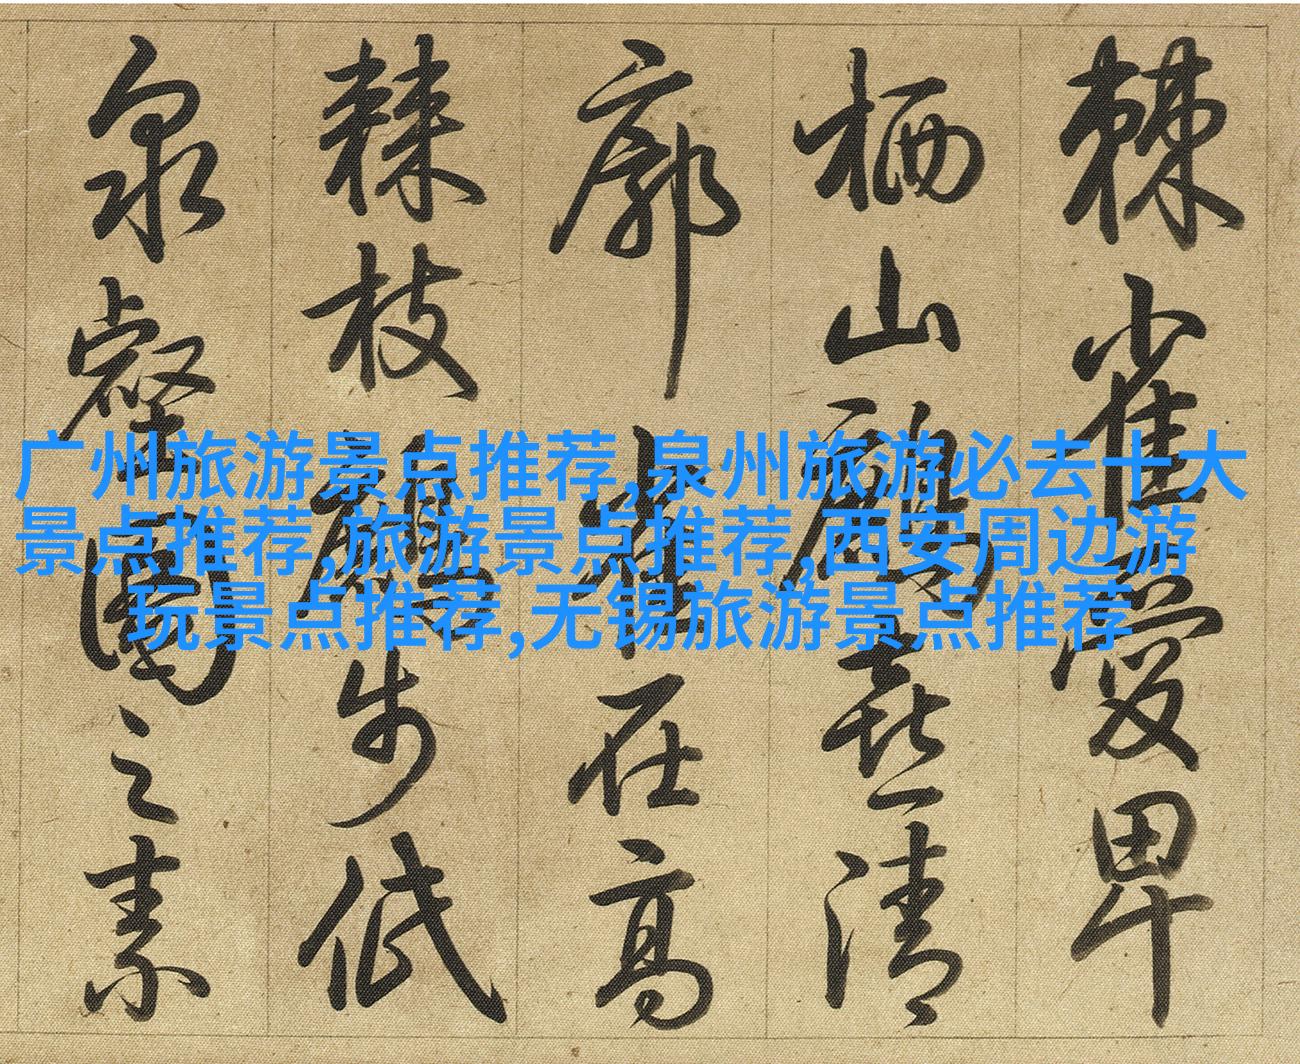 广州旅游景点推荐,泉州旅游必去十大
景点推荐,旅游景点推荐,西安周边游
玩景点推荐,无锡旅游景点推荐
棘雀愛卑
栖山喜清
廓在高
棘枝步低
泉壑之素